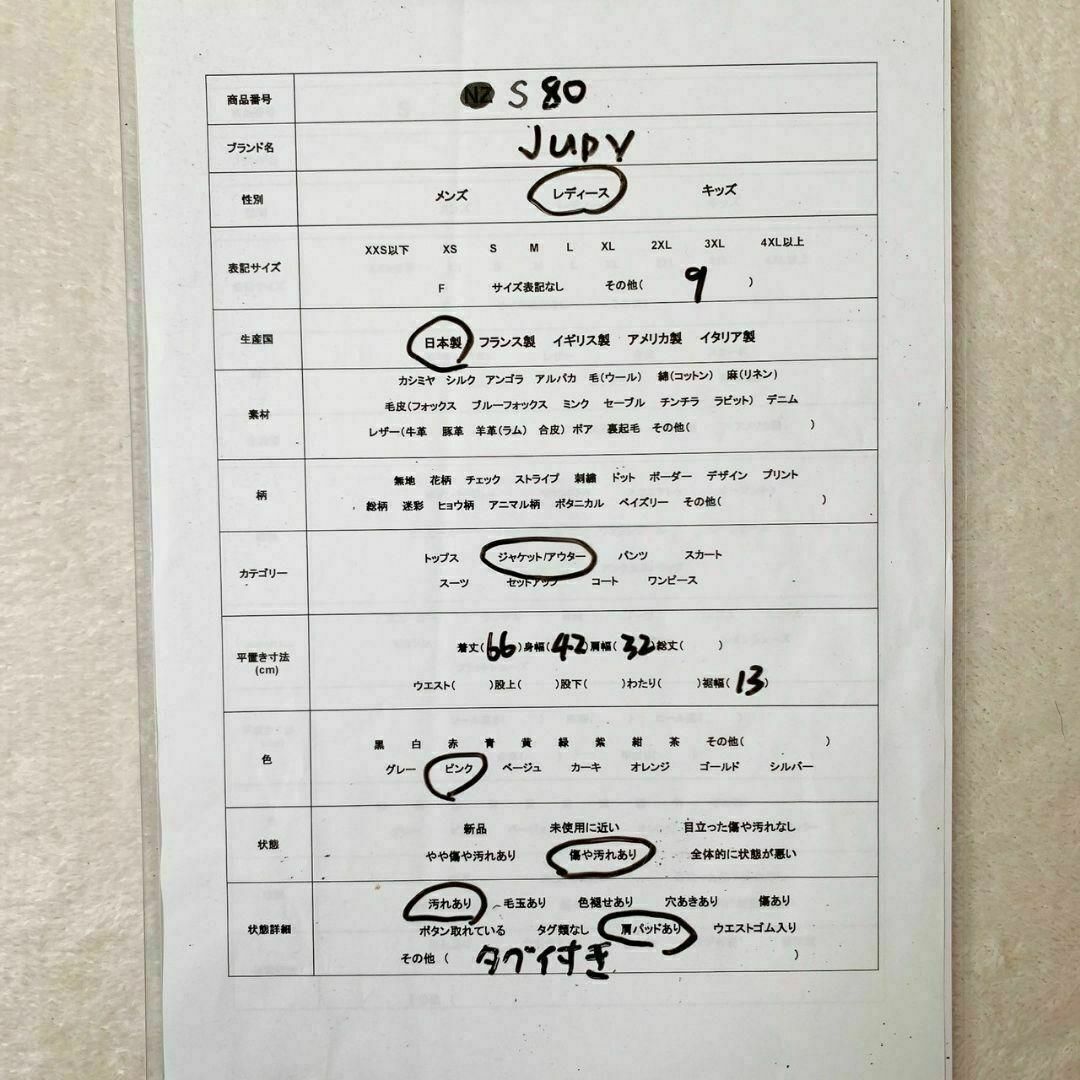 商品番号 NZ S 80
ブランド名 JUDY
性別 メンズ レディース キッズ
XXS以下 XS S M L XL 2XL 3XL 4XL以上
表記サイズ
F サイズ表記なし その他( 9 )
生産国 日本製 フランス製 イギリス製 アメリカ製 イタリア製
カシミヤ シルク アンゴラ アルパカ 毛(ウール) 綿(コットン) 麻(リネン)
素材 毛皮(フォックス ブルーフォックス ミンク セーブル チンチラ ラビット) デニム
レザー(牛革 豚革 羊革(ラム) 合皮) ボア 裏起毛 その他( )
無地 花柄 チェック ストライプ 刺繍 ドット ボーダー デザイン プリント
柄
総柄 迷彩 ヒョウ柄 アニマル柄 ボタニカル ペイズリー その他( )
トップス ジャケット/アウター パンツ スカート
カテゴリー
スーツ セットアップ コート ワンピース
着丈(66)身幅(42)肩幅(32)総丈( )
平置き寸法
(cm)
ウエスト( )股上( )股下( )わたり( )裾幅(13)
黒 白 赤 青 黄 緑 紫 紺 茶 その他( )
色
グレー ピンク ベージュ カーキ オレンジ ゴールド シルバー
新品 未使用に近い 目立った傷や汚れなし
状態
やや傷や汚れあり 傷や汚れあり 全体的に状態が悪い
汚れあり 毛玉あり 色褪せあり 穴あきあり 傷あり
状態詳細 ボタン取れている タグ類なし 肩パッドあり ウエストゴム入り
その他 ( タグイすき )